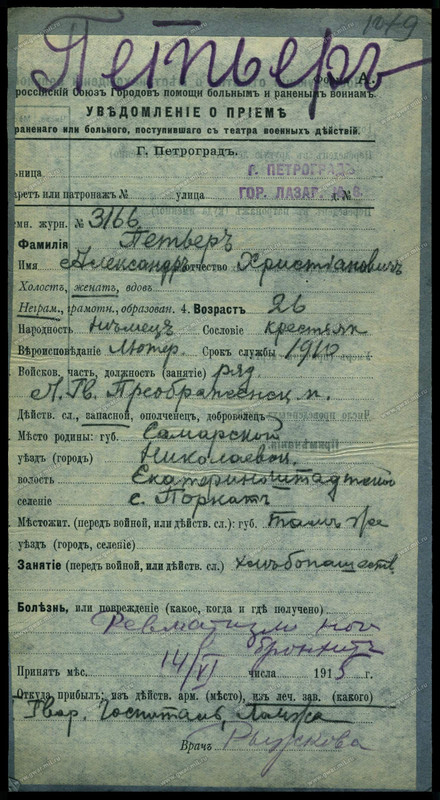 1079
Петьеръ
Форма А.
россійскій Союзъ Городовъ помощи больнымъ и раненымъ воинамъ.
УВѢДОМЛЕНІЕ О ПРІЕМѢ
раненаго или больного, поступившаго съ театра военныхъ дѣйствій.
Г. Петроградъ.
ьница Г. ПЕТРОГРАДЪ
аретъ или патронажъ № улица ГОР. ЛАЗАР. д. №
емн. журн. № 3166
Фамилія Петьеръ
Имя Александръ отчество Христіановичъ
Холостъ, женатъ, вдовъ
Неграм., грамотн., образован. 4. Возрастъ 26
Народность Нѣмецъ Сословіе крестьян
Вѣроисповѣданіе Лютер. Срокъ службы 1910
Войсков. часть, должность (занятіе) ряд.
Л. Гв. Преображенск. п.
Дѣйств. сл., запасной, ополченецъ, доброволецъ
Мѣсто родины: губ. Самарской
уѣздъ (городъ) Николаевск.
волость Екатериноштадтской
селеніе с. Поркатъ
Мѣстожит. (передъ войной, или дѣйств. сл.): губ. тамъ же
уѣздъ (городъ, селеніе)
Занятіе (передъ войной, или дѣйств. сл.) хлѣбопашеств.
Болѣзнь, или поврежденіе (какое, когда и гдѣ получено)
Ревматизм ног
бронхит
Принятъ мѣс. 14/VI 1915 г.
Откуда прибылъ: изъ дѣйств. арм. (мѣсто), изъ леч. зав. (какого)
Гвар. Госпиталь, Ломжа
Врачъ Рыжкова